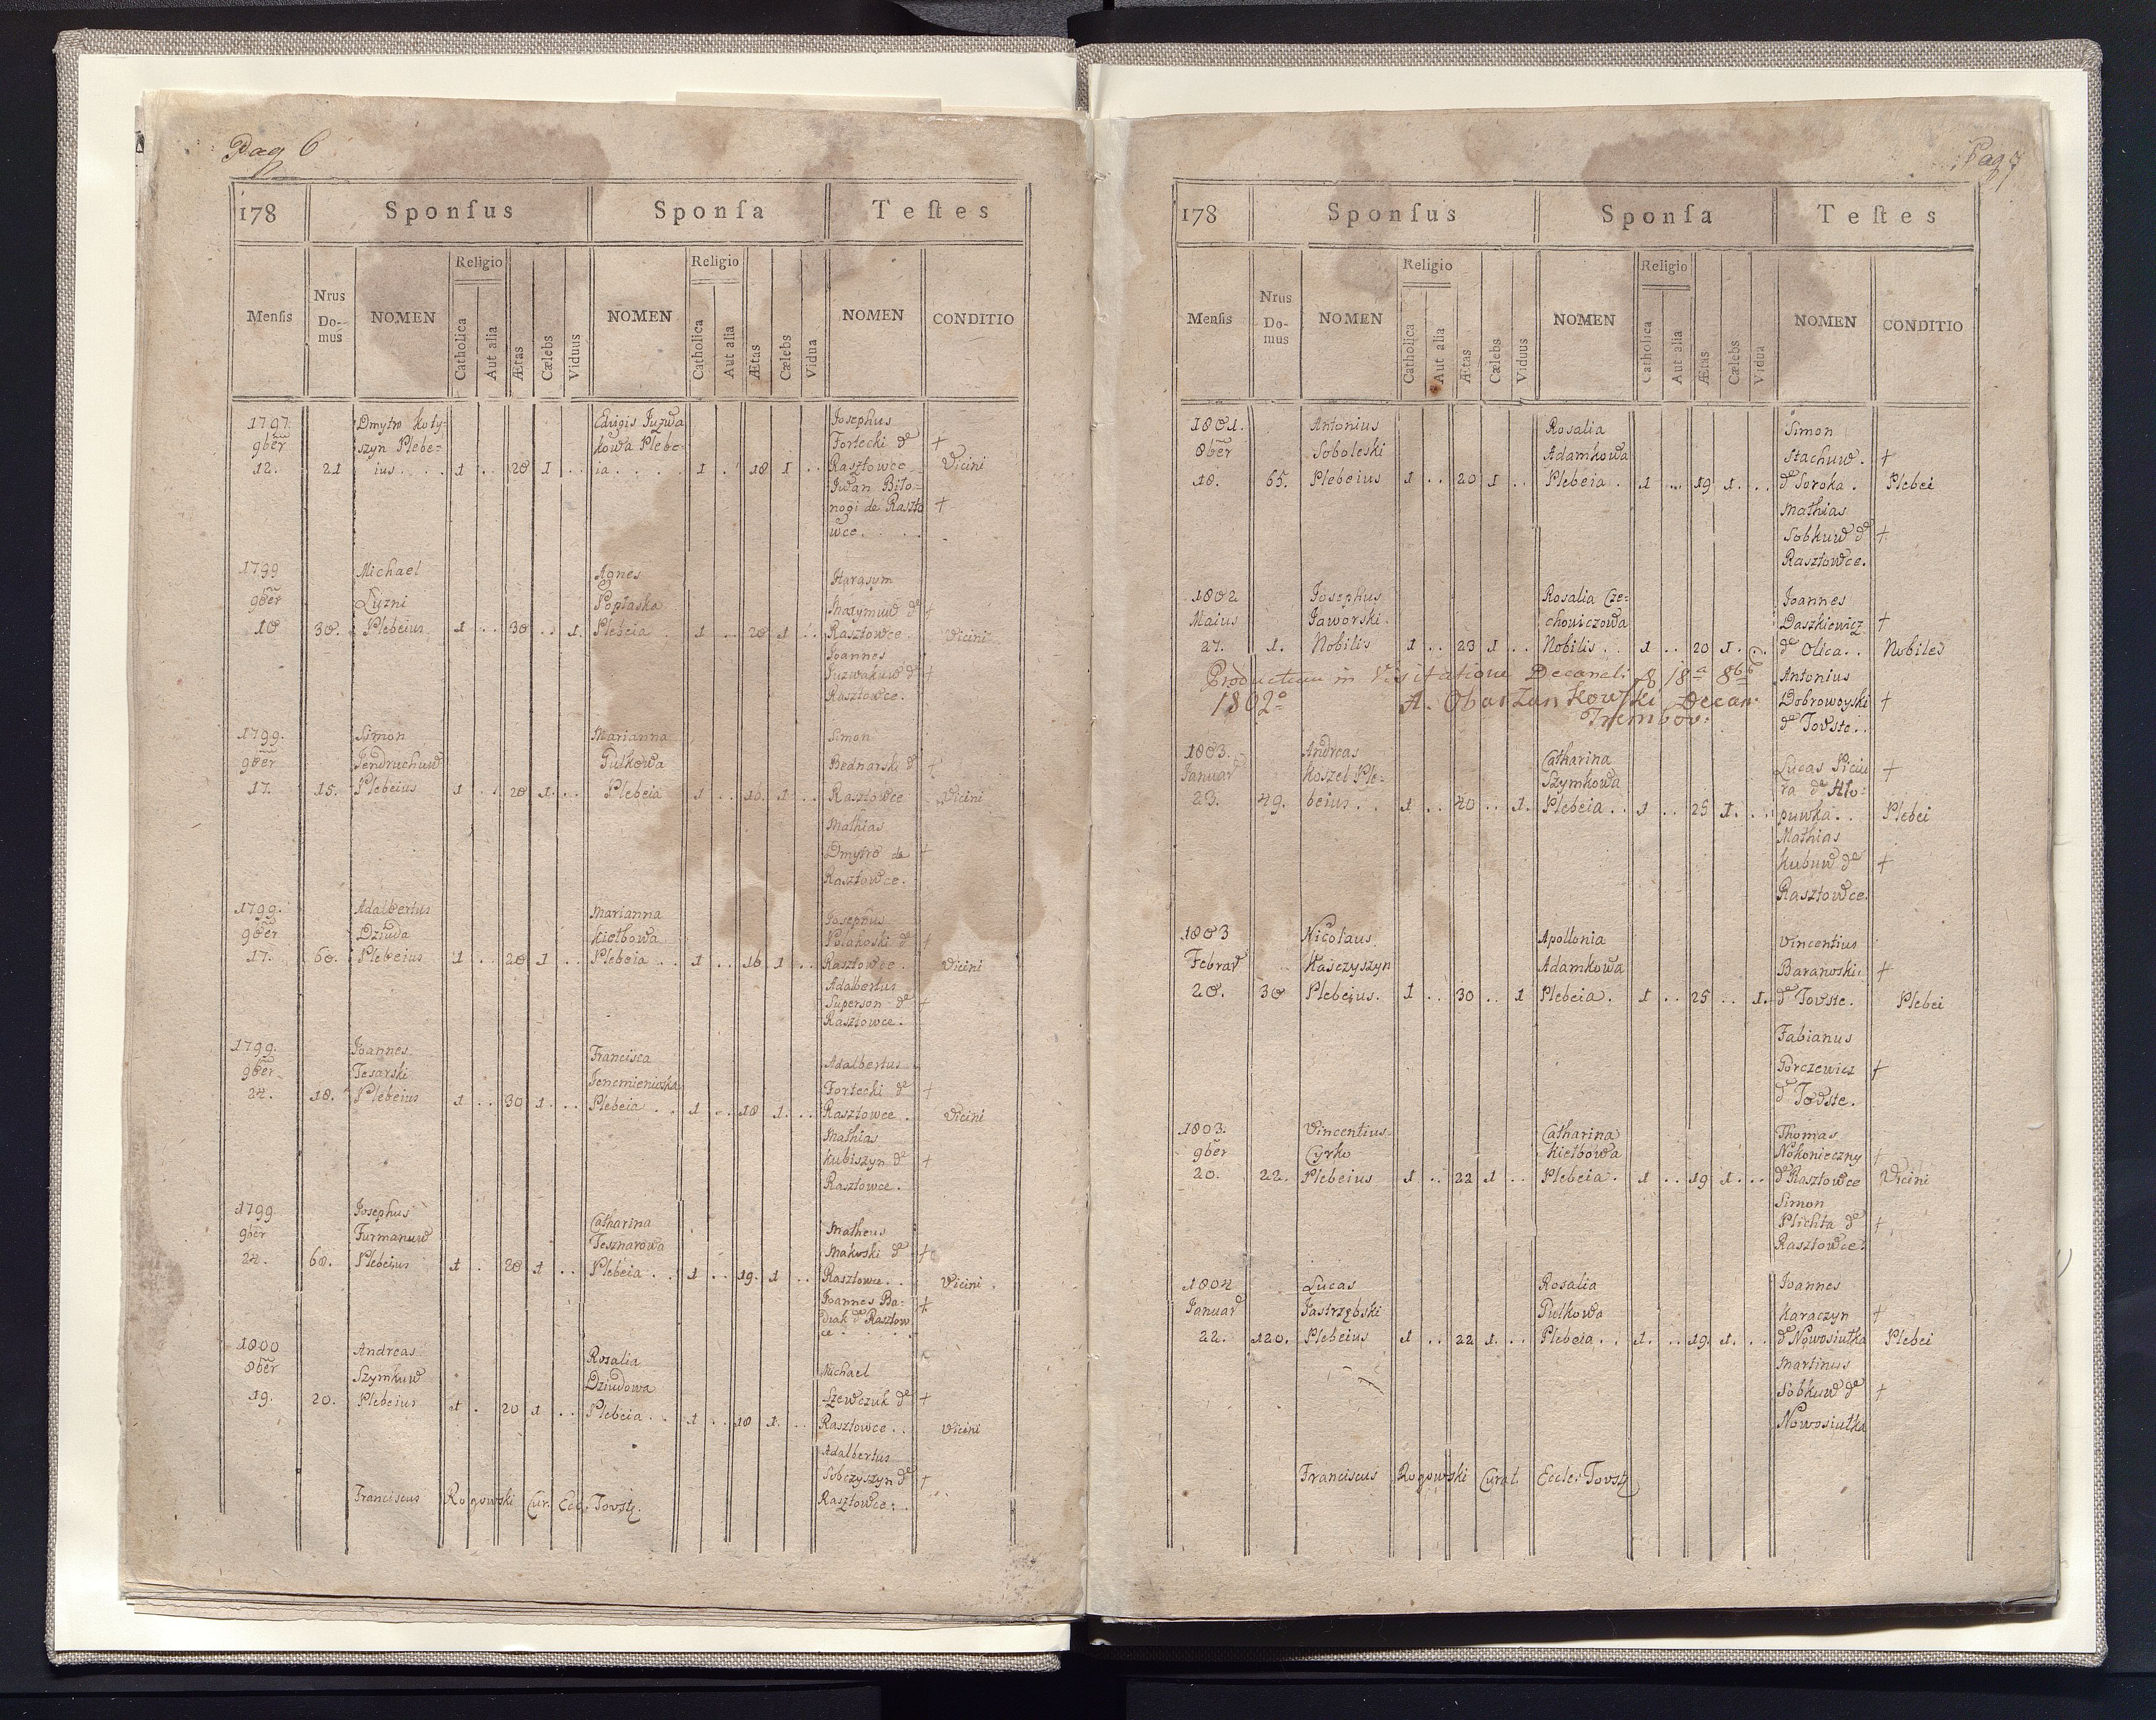 Pag 6
178 Sponſus Sponſa Teſtes
Menſis Nrus Do-mus NOMEN Religio Catholica Aut alia Ætas Cælebs Viduus NOMEN Religio Catholica Aut alia Ætas Cælebs Vidua NOMEN CONDITIO
1797. Dmytro Koty- Edigis Juzwa Josephus
9ber szyn Plebe- kowa Plebe- Fortecki de +
12. 21 ius . . . 1 . . 28 1 . . ia . . . . 1 . . 18 1 . . Rasztowce Vicini
Iwan Biło-
nogi de Raszto +
wce . . . .
1799 Michael Agnes Harasym
9ber Luzni Popłaska Maxymuw de +
10 38. Plebeius 1 . . 30 . . 1. Plebeia 1 . . 20 1 . . Rasztowce. Vicini
Joannes
Juzwakuw de +
Rasztowce.
1799. Simon Marianna Simon
9ber Jendruchuw Pułkowa Bednarski de +
17. 15. Plebeius 1 . . 20 1 . . Plebeia 1 . . 16. 1 . . Rasztowce Vicini
Mathias
Dmytro de +
Rasztowce.
1799. Adalbertus Marianna Josephus
9ber Dziuda Kiełbowa Polakoski de +
17. 60. Plebeius 1 . . 20 1 . . Plebeia . . 1 . . 16 1 . . Rasztowce . Vicini
Adalbertus
Superson de +
Rasztowce.
1799. Joannes Francisca Adalbertus
9ber Tesarski Fortecki de +
24. 18. Plebeius 1 . . 30 1 . . Plebeia . . 1 . . 18 1 . . Rasztowce . Vicini
Mathias
Kubiszyn de +
Rasztowce.
1799 Josephus Catharina Matheus
9ber Furmanuw Tesznarowa Makoski de +
24. 68. Plebeius 1 . 20 1 . . Plebeia . . 1 . . 19. 1 . . Rasztowce . . Vicini
Joannes Ba- +
Rasztow
ce . . . .
1800 Andreas Rosalia Michael
8ber Szymkuw Dziudowa Szewczuk de +
19. 20. Plebeius 1 . 20 1 . . Plebeia . . 1 . . 18 1. . Rasztowce . . Vicini
Adalbertus
Sobczyszyn de +
Rasztowce . .
Franciscus Rogowski Cur. Ecc. Tovst.
Pag 7
178 Sponſus Sponſa Teſtes
Menſis Nrus Do-mus NOMEN Religio Catholica Aut alia Ætas Cælebs Viduus NOMEN Religio Catholica Aut alia Ætas Cælebs Vidua NOMEN CONDITIO
1801. Antonius Rosalia Simon
8ber Soboleski Adamkowa Stachuw . +
18. 65. Plebeius 1 . . 20 1 . . Plebeia . 1 . . 19 1 . . . de Soroka . Plebei
Mathias
Sobkuw de +
Rasztowce.
1802 Josephus Rosalia Cze- Joannes
Maius Jaworski chowiczowa Daszkiewicz +
27. 1. Nobilis 1 . . 23 1 . . Nobilis . . 1 . . 20 1 . . . de Olica . . Nobiles
Productum in Visitatione Decanali d 18a 8b Antonius
1802o A. Obarzankowski Decan: Dobrowoyski +
Trembov: de Tovste . .
1803. Andreas Catharina Lucas Siciu +
Januar Koszel Ple- Szymkowa ra de Hło-
23. 49. beius . . 1 . . 40 . . 1. Plebeia . . 1 . . 25 1. . . puwka . . Plebei
Mathias
Kubuw de +
Rasztowce.
1803 Nicolaus Apollonia Vincentius
Februar Haśczyszyn Adamkowa Baranoski +
20. 30 Plebeius. 1 . . 30 . . 1 Plebeia. 1 . . 25 . . 1. de Tovste. Plebei
Fabianus
Porczewicz +
de Tovste.
1803. Vincentius Catharina Thomas
9ber Cyrko Kiełbowa Nokonieczny +
20. 22. Plebeius 1 . . 22 1 . . Plebeia. 1 . . 19 1 . . . de Rasztowce Vicini
Simon
Plichta de +
Rasztowce.
1804 Lucas Rosalia Joannes
Januar Jastrzębski Pułkowa Karaczyn +
22. 120. Plebeius 1 . . 22 1. . . Plebeia . . 1. . . 19. 1. . . de Nowosiułka Plebei
Martinus
Sobkuw de +
Nowosiułka
Franciscus Rogowski Curat. Eccle: Tovst